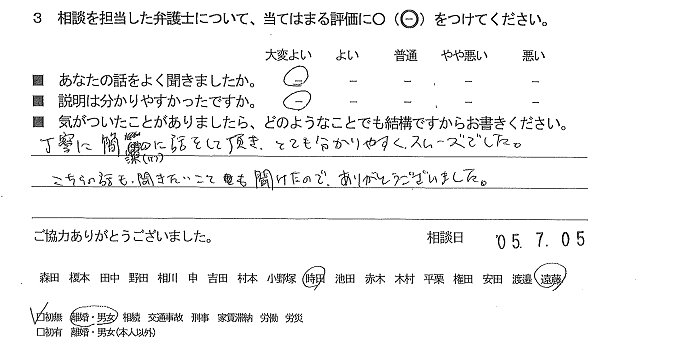 3 相談を担当した弁護士について、当てはまる評価に〇(⊖)をつけてください。
大変よい よい 普通 やや悪い 悪い
■ あなたの話をよく聞きましたか。 － － － － －
■ 説明は分かりやすかったですか。 － － － － －
■ 気がついたことがありましたら、どのようなことでも結構ですからお書きください。
丁寧に簡潔に話をして頂き、とても分かりやすく、スムーズでした。
こちらの話も、聞きたいことも聞けたので、ありがとうございました。
ご協力ありがとうございました。 相談日 '05.7.05
森田 榎本 田中 野田 相川 申 吉田 村本 小野塚 時田 池田 赤木 木村 平栗 権田 安田 渡邉 遠藤
□初無 離婚・男女 相続 交通事故 刑事 家賃滞納 労働 労災
□初有 離婚・男女(本人以外)